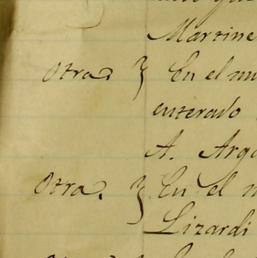 Martine
Otra. } En el m
enterado
A. Arg
Otra. } En el m
Lizardi